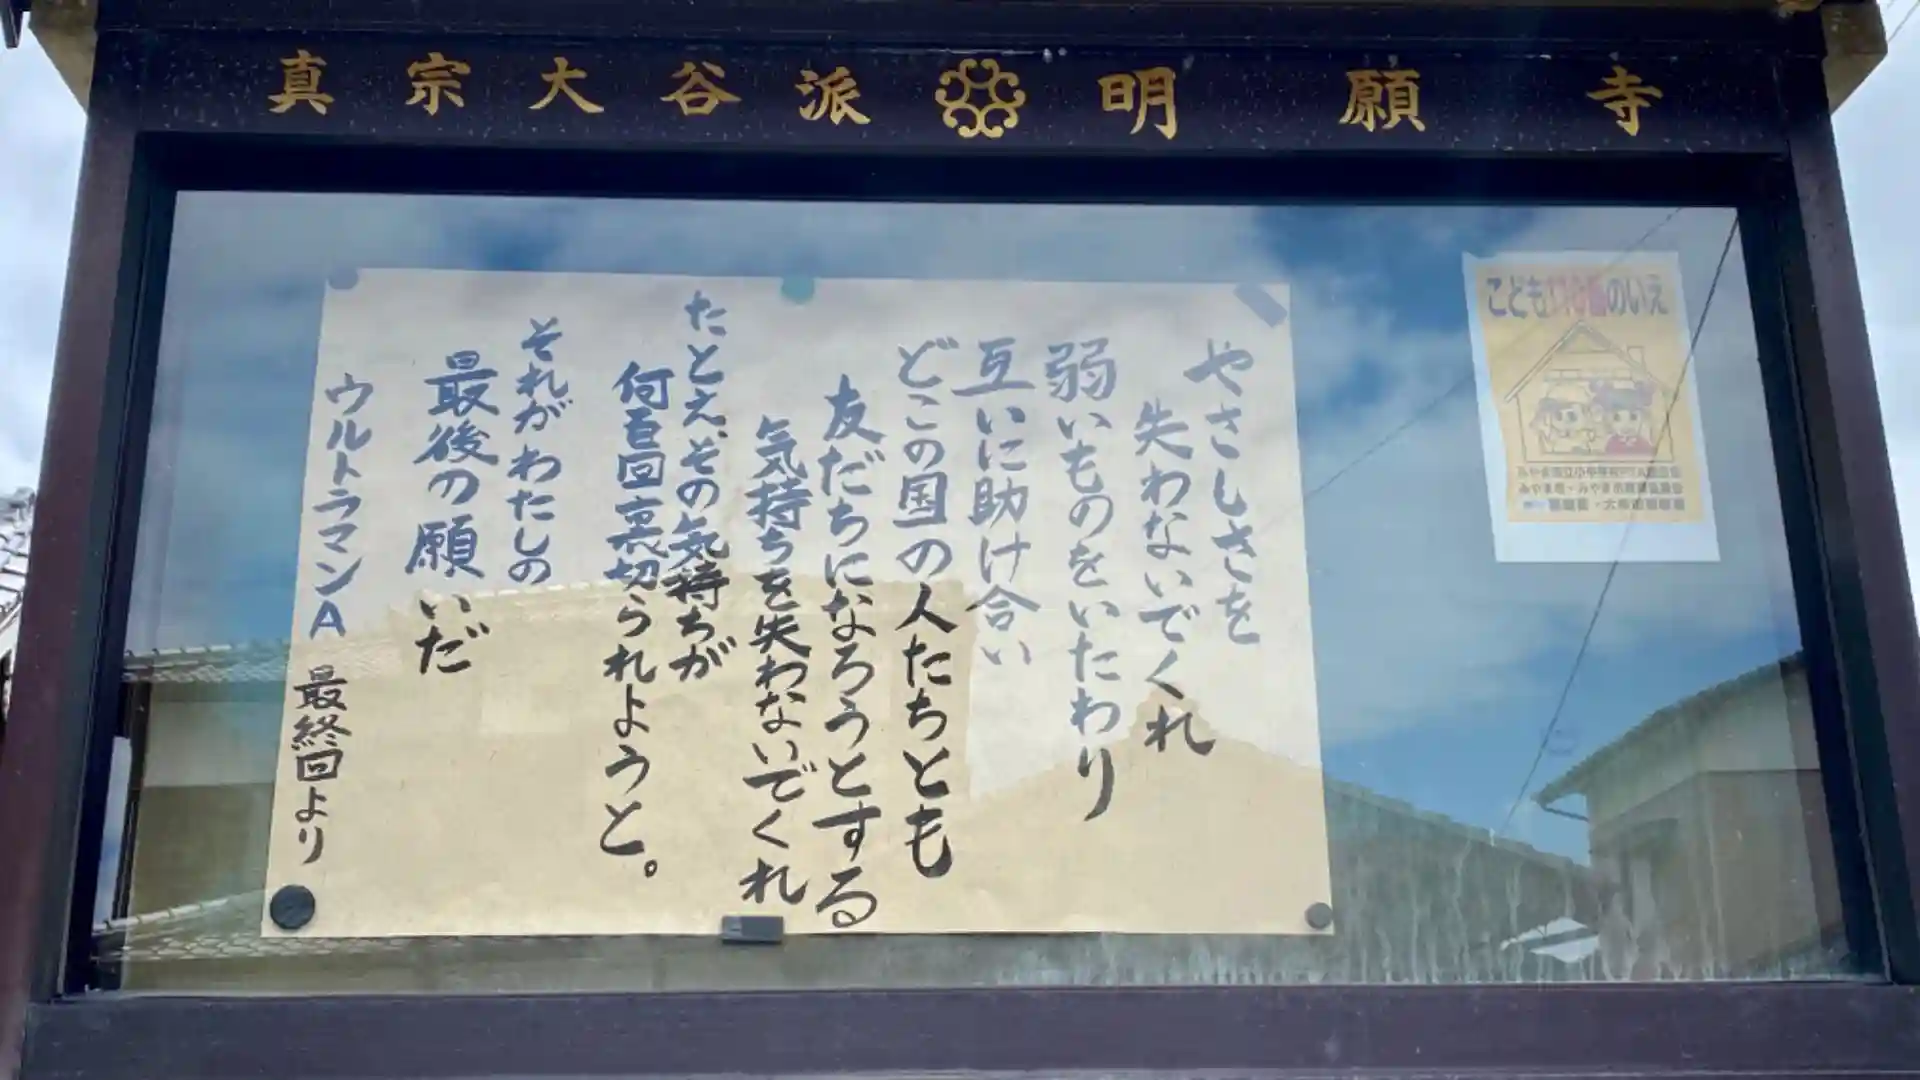 真宗大谷派 明願寺
やさしさを
失わないでくれ
弱いものをいたわり
互いに助け合い
どこの国の人たちとも
友だちになろうとする
気持ちを失わないでくれ
たとえ、その気持ちが
何百回裏切られようと。
それがわたしの
最後の願いだ
ウルトラマンA 最終回より
こども110番のいえ